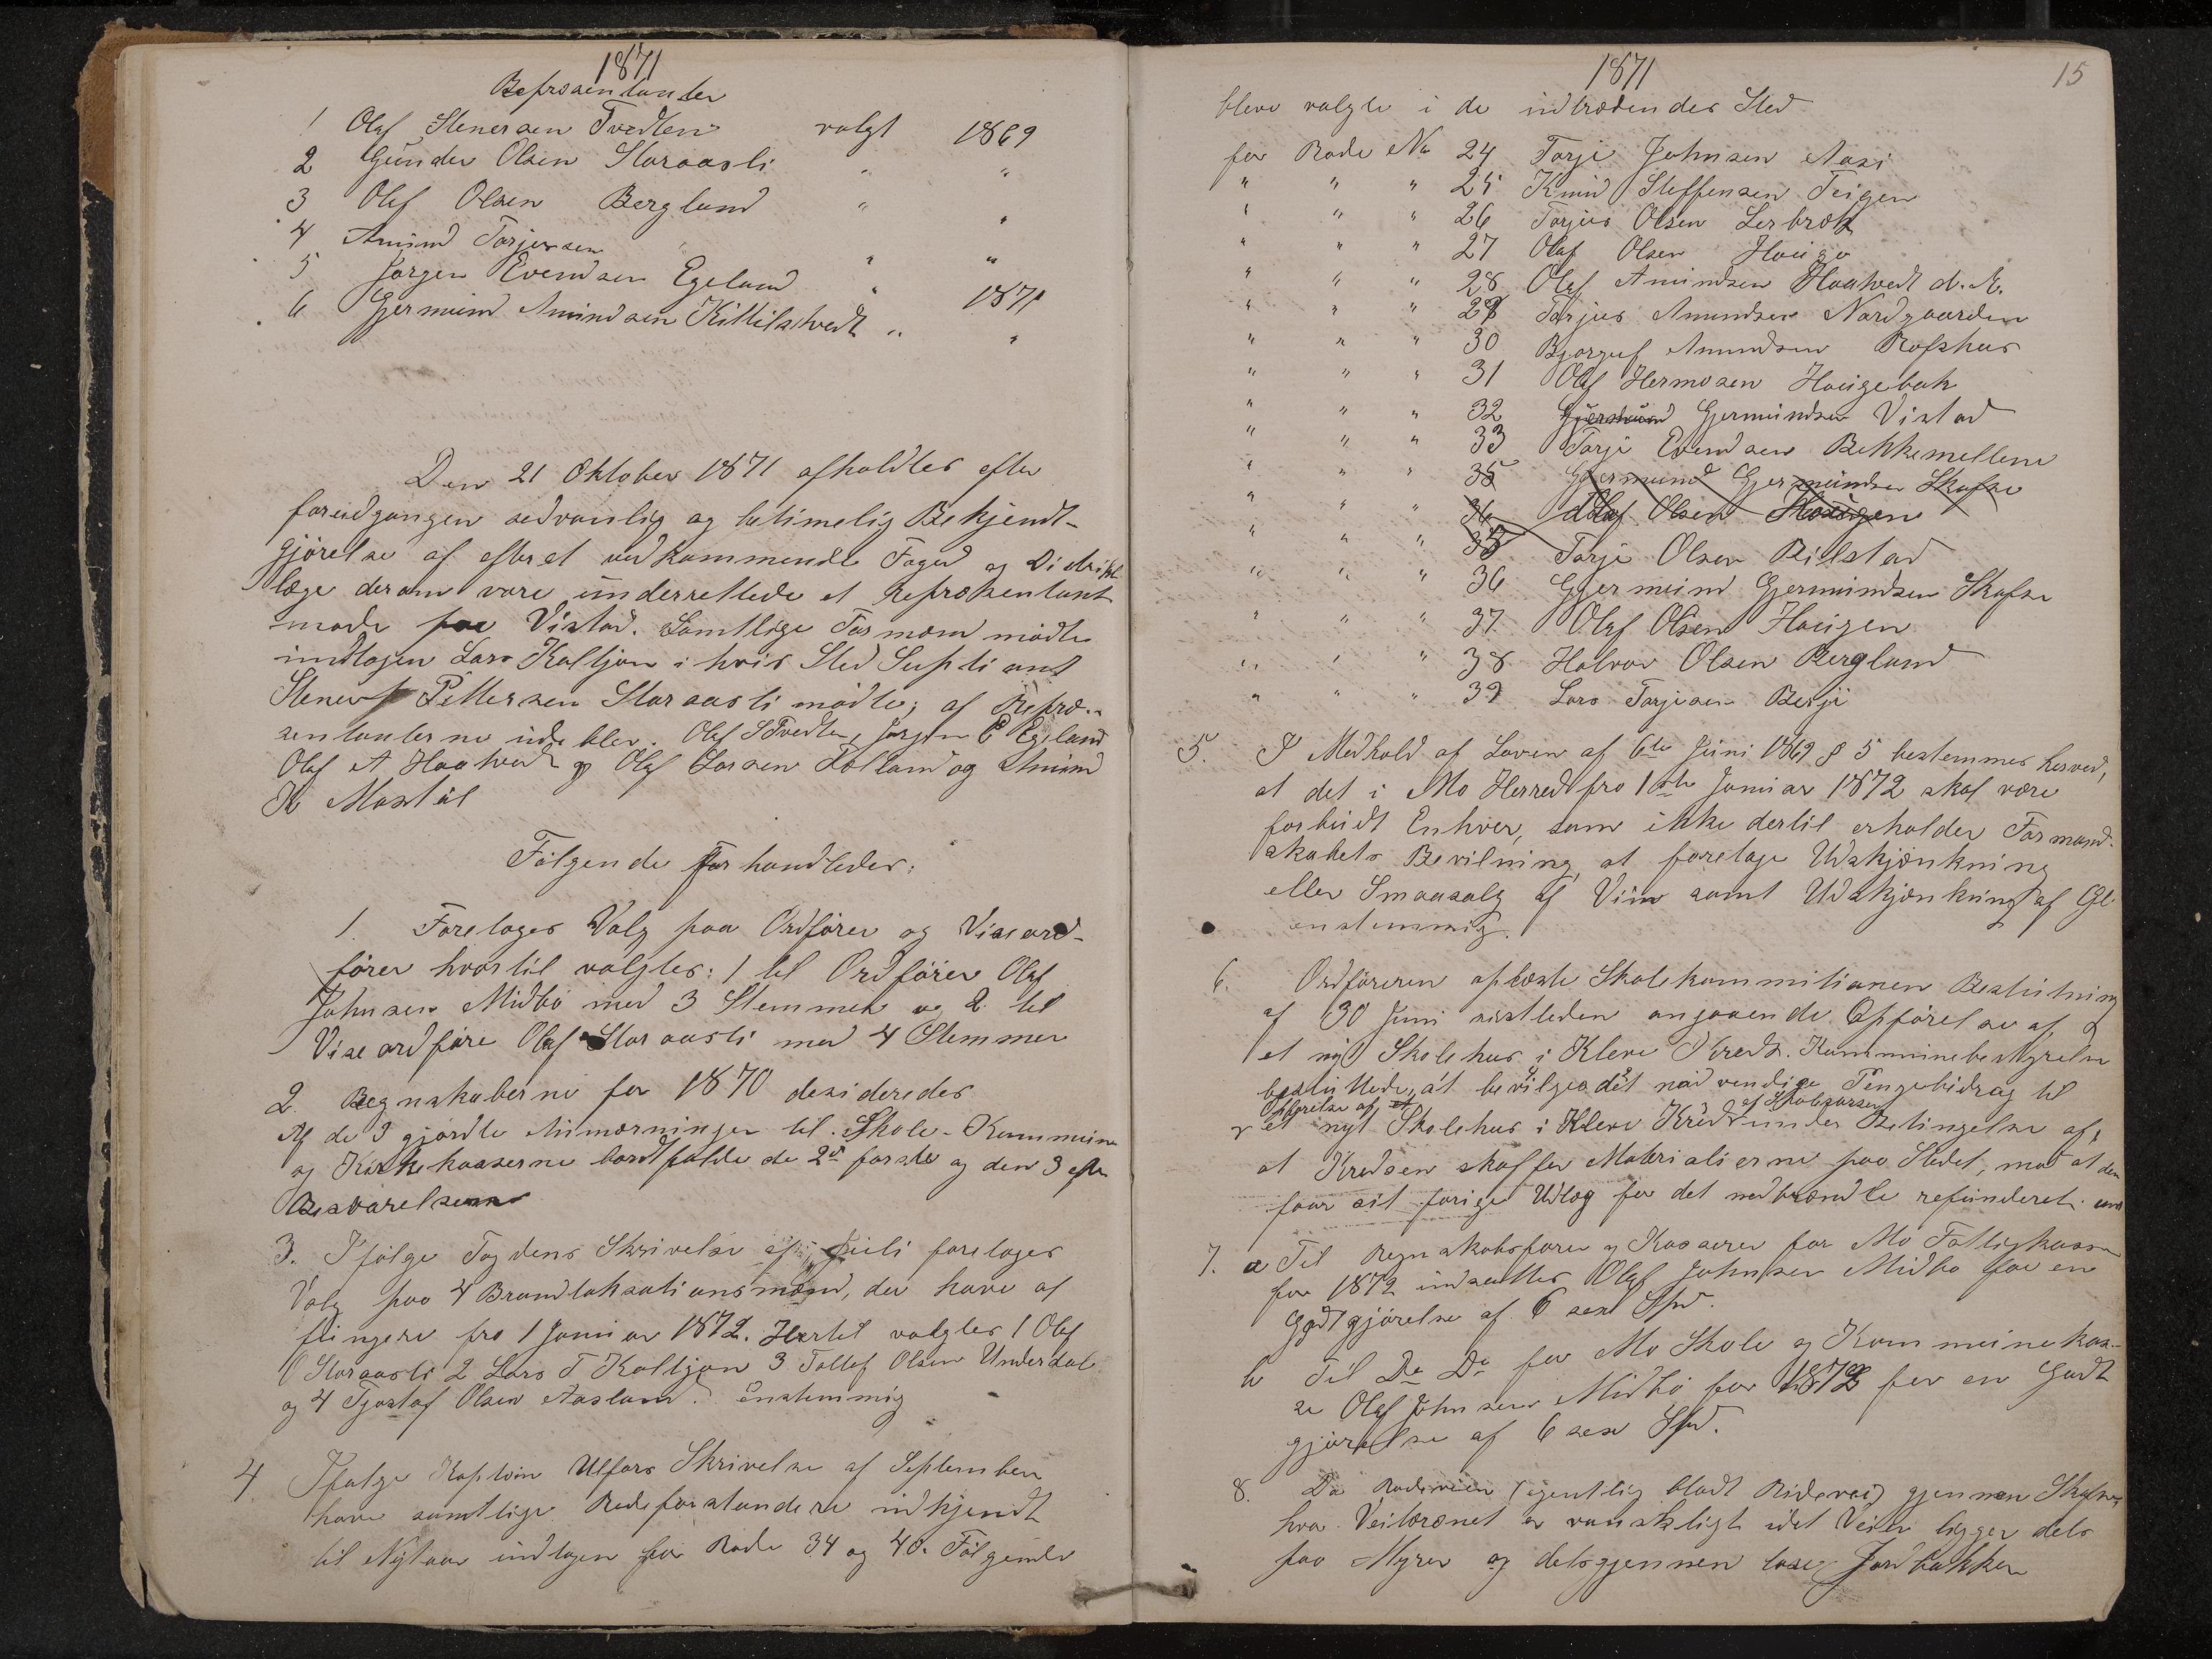 1871
Repræsentanter
1 Olaf Stenersen Tvedten valgt 1869
2 Gunder Olsen Storaasli " "
3 Olef Olsen Berglund " "
4 Amund Torjersen " "
5 Jørgen Evendsen Egeland " 1871
6 Gjermund Amundsen Kittilstvedt " "
Den 21 Oktober 1871 afholdtes efter
foreudgangen sedvanlig og betimelig Bekjendt-
gjörelse af efteret vedkommende Foged og Distrikts
læge derom vare underrettede et Repræsentant
möde paa Vistad. Samtlige Formænd mödte
indtagen Lars Kaltjon i hvis Sted Supliant
Stener Pettersen Storaasli mödte; af Repræ-
sentanterne udeblev. Olaf S Tvedten, Jørgen E Egeland
Olaf A Haatvedt og Olaf Larsen Holland og Amund
K Mostøl
Fölgende forhandledes:
1. Foretoges Valg paa Ordförer og Viseord-
förer hvortil valgtes: 1 til Ordförer Olaf
Johnsen Midbö med 3 Stemmer og 2 til
Viseordföre Olaf Storaasli med 4 Stemmer
2. Regnskaberne for 1870 desideredes
Af de 3 gjordte Anmærninger til Skole-Kommune
og Kirkekasserne bortfaldt de 2de første og den 3 efter
Besvarelsen
3. Ifölge Fogdens Skrivelse af Juli foretoges
Valg paa 4 Brandtaksationsmænd, der have af
fungere fra 1 Januar 1872. Hertil valgtes 1 Olaf
O Storaasli 2 Lars T Kaltjon 3 Tallef Olsen Underdal
og 4 Tjøstof Olsen Aasland. Enstemmig
4 Ifølge Kaptein Ulfers Skrivelse af September
have samtlige Rodeforstandere udkjendt
til Nytaar indtagen for Rode 34 og 40. Fölgende
1871 15
bleve valgte i de udtrædendes Sted
for Rode No 24 Torje Johnsen Aasi
" " " 25 Knud Steffensen Teigen
" " " 26 Torjus Olsen Lerbræk
" " " 27 Olaf Olsen Hauge
" " " 28 Olaf Amundsen Haatvedt d. A.
" " " 29 Torjus Amundsen Nordgaarden
" " " 30 Bjorguf Amundsen Rofshus
" " " 31 Olaf Hermosen Haugebak
" " " 32 Gjermund Gjermundsen Vistad
" " " 33 Torje Evendsen Bekkemellem
" " " 35 Gjermund Gjermundsen Skafse
" " " 36 Olaf Olsen Haugen
" " " 35 Torje Olsen Beilstad
" " " 36 Gjermund Gjermundsen Skafse
" " " 37 Olaf Olsen Haugen
" " " 38 Halvor Olsen Berglund
" " " 39 Lars Torjesen Berje
5. I Medhold af Loven af 6te Juni 1869 § 5 bestemmes herved,
at det i Mo Herred fra 1ste Januar 1872 skal være
forbudt Enhver, som ikke dertil erholder Formand-
skabets Bevilning, at foretage Udskjænkning
eller Smaasalg af Viin samt Udskjænkning af Öl
enstemmig.
6. Ordföreren oplæste Skolekommitionen Beslutning
af 30 Juni sistleden angaaende Opförelse af
et nyt Skolehus i Kleve Kreds. Kommunebestyrelsen
besluttede, at bevilge det nødvendige Pengebidrag til
Opförelse af et af Skolekassen
et nyt Skolehus i Kleve Kreds under Betingelse af,
at Kredsen skaffer Materialierne paa Stedet, mod at den
faar sit forige Udlæg for det nedbrændte refunderet.
7. a Til Regnskabsförer og Kasserer for Mo Fattigkasse
for 1872 indsættes Olaf Johnsen Midbö for en
Godtgjörelse af 6 sex Spd.
b Til Do Do for Mo Skole og Kommunekas-
se Olaf Johnsen Midbö for 1872 for en Godt
gjörelse af 6 sex Spd.
8. Da Rodeveien (egentlig blodt Rideveij) gjennem Skafse
hvor Veilæænet er vanskligt idet Veien ligger dels
paa Myrer og dels gjennem löse Jordbakker